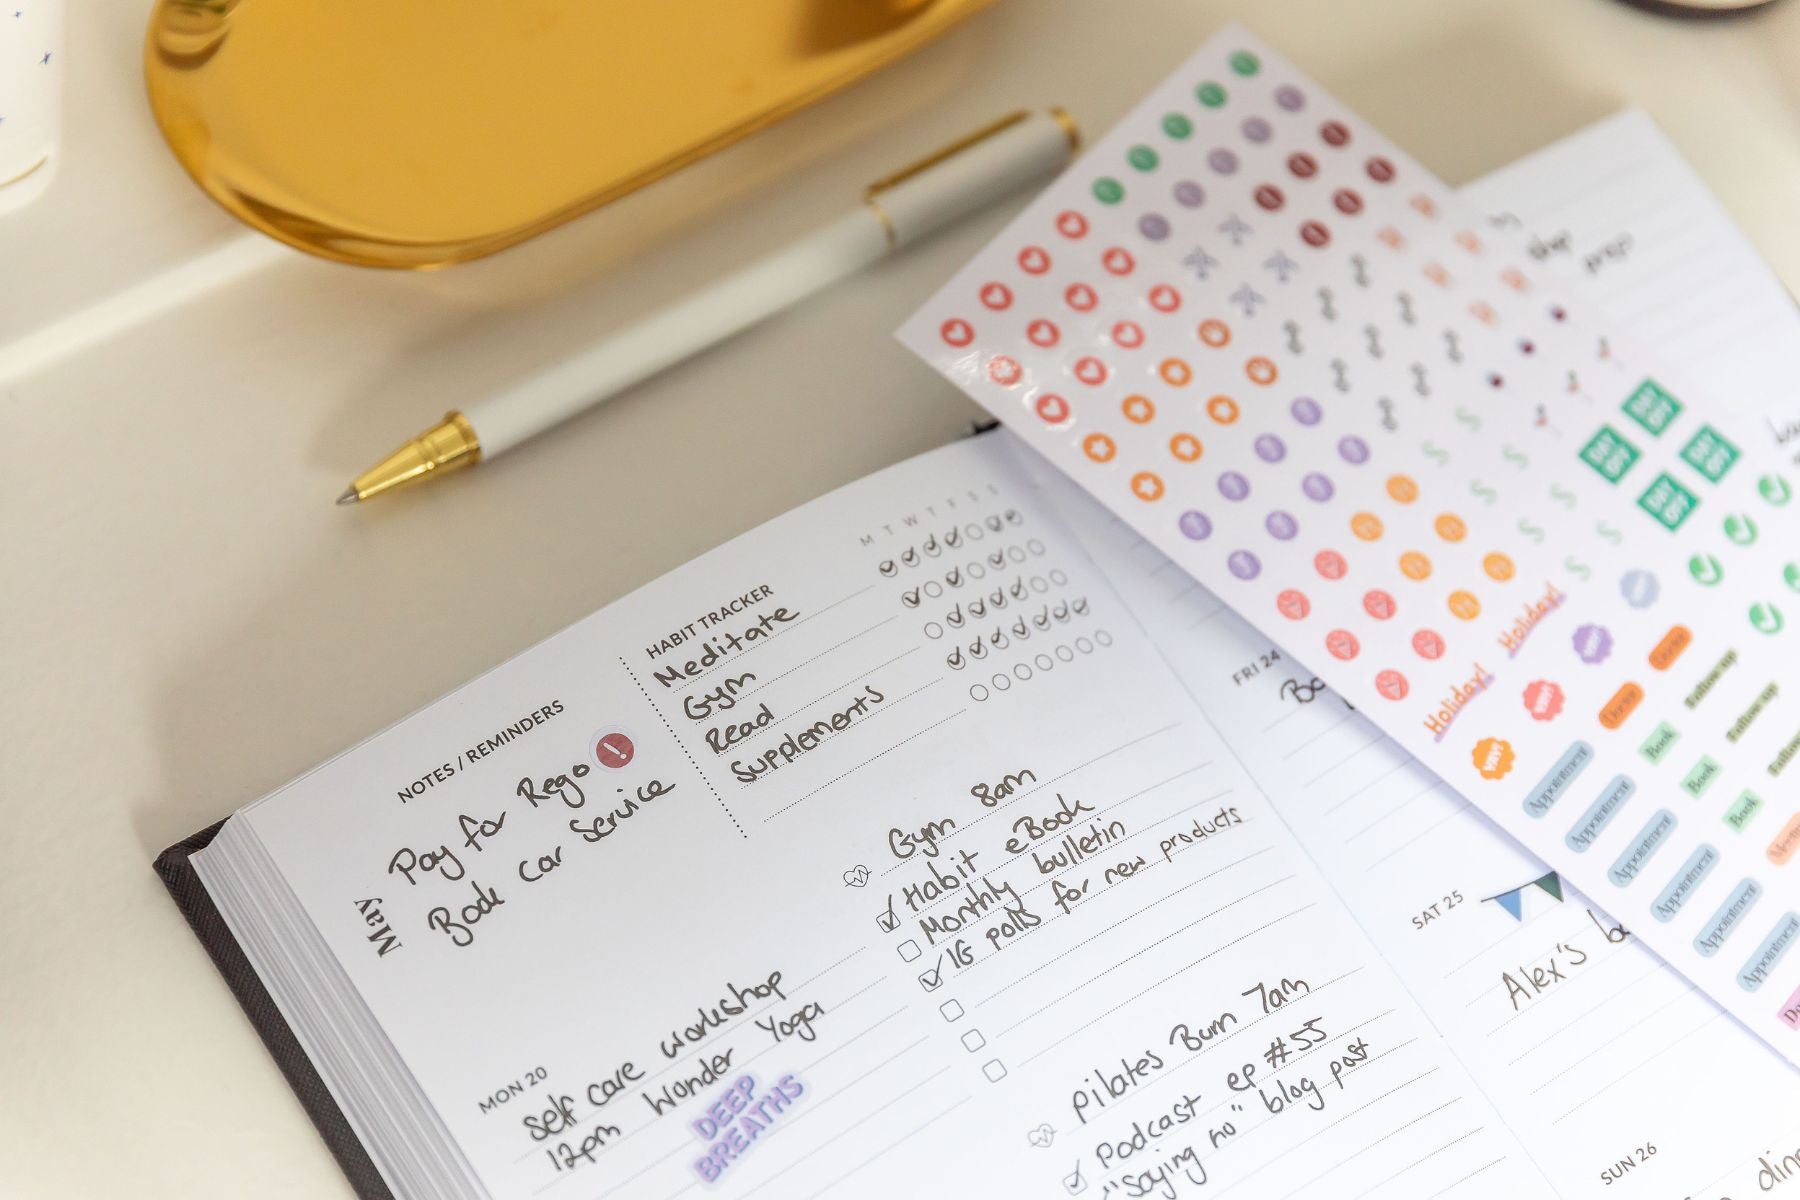 NOTES / REMINDERS
Pay for Rego !
Book Car Service
HABIT TRACKER
M T W T F S S
Meditate
Gym
Read
Supplements
May
MON 20
self care workshop
12pm Wonder Yoga
DEEP
BREATHS
Gym 8am
Habit eBook
Monthly bulletin
IG polls for new products
pilates Burn 7am
Podcast ep #55
"saying no" blog post
FRI 24
SAT 25
Alex's
SUN 26
DAY OFF
DAY OFF
DAY OFF
DAY OFF
Holiday!
Holiday!
YAY!
YAY!
YAY!
Due
Due
Follow up
Follow up
Follow
Book
Book
Book
Appointment
Appointment
Appointment
Appointment
Appointment
Appointment